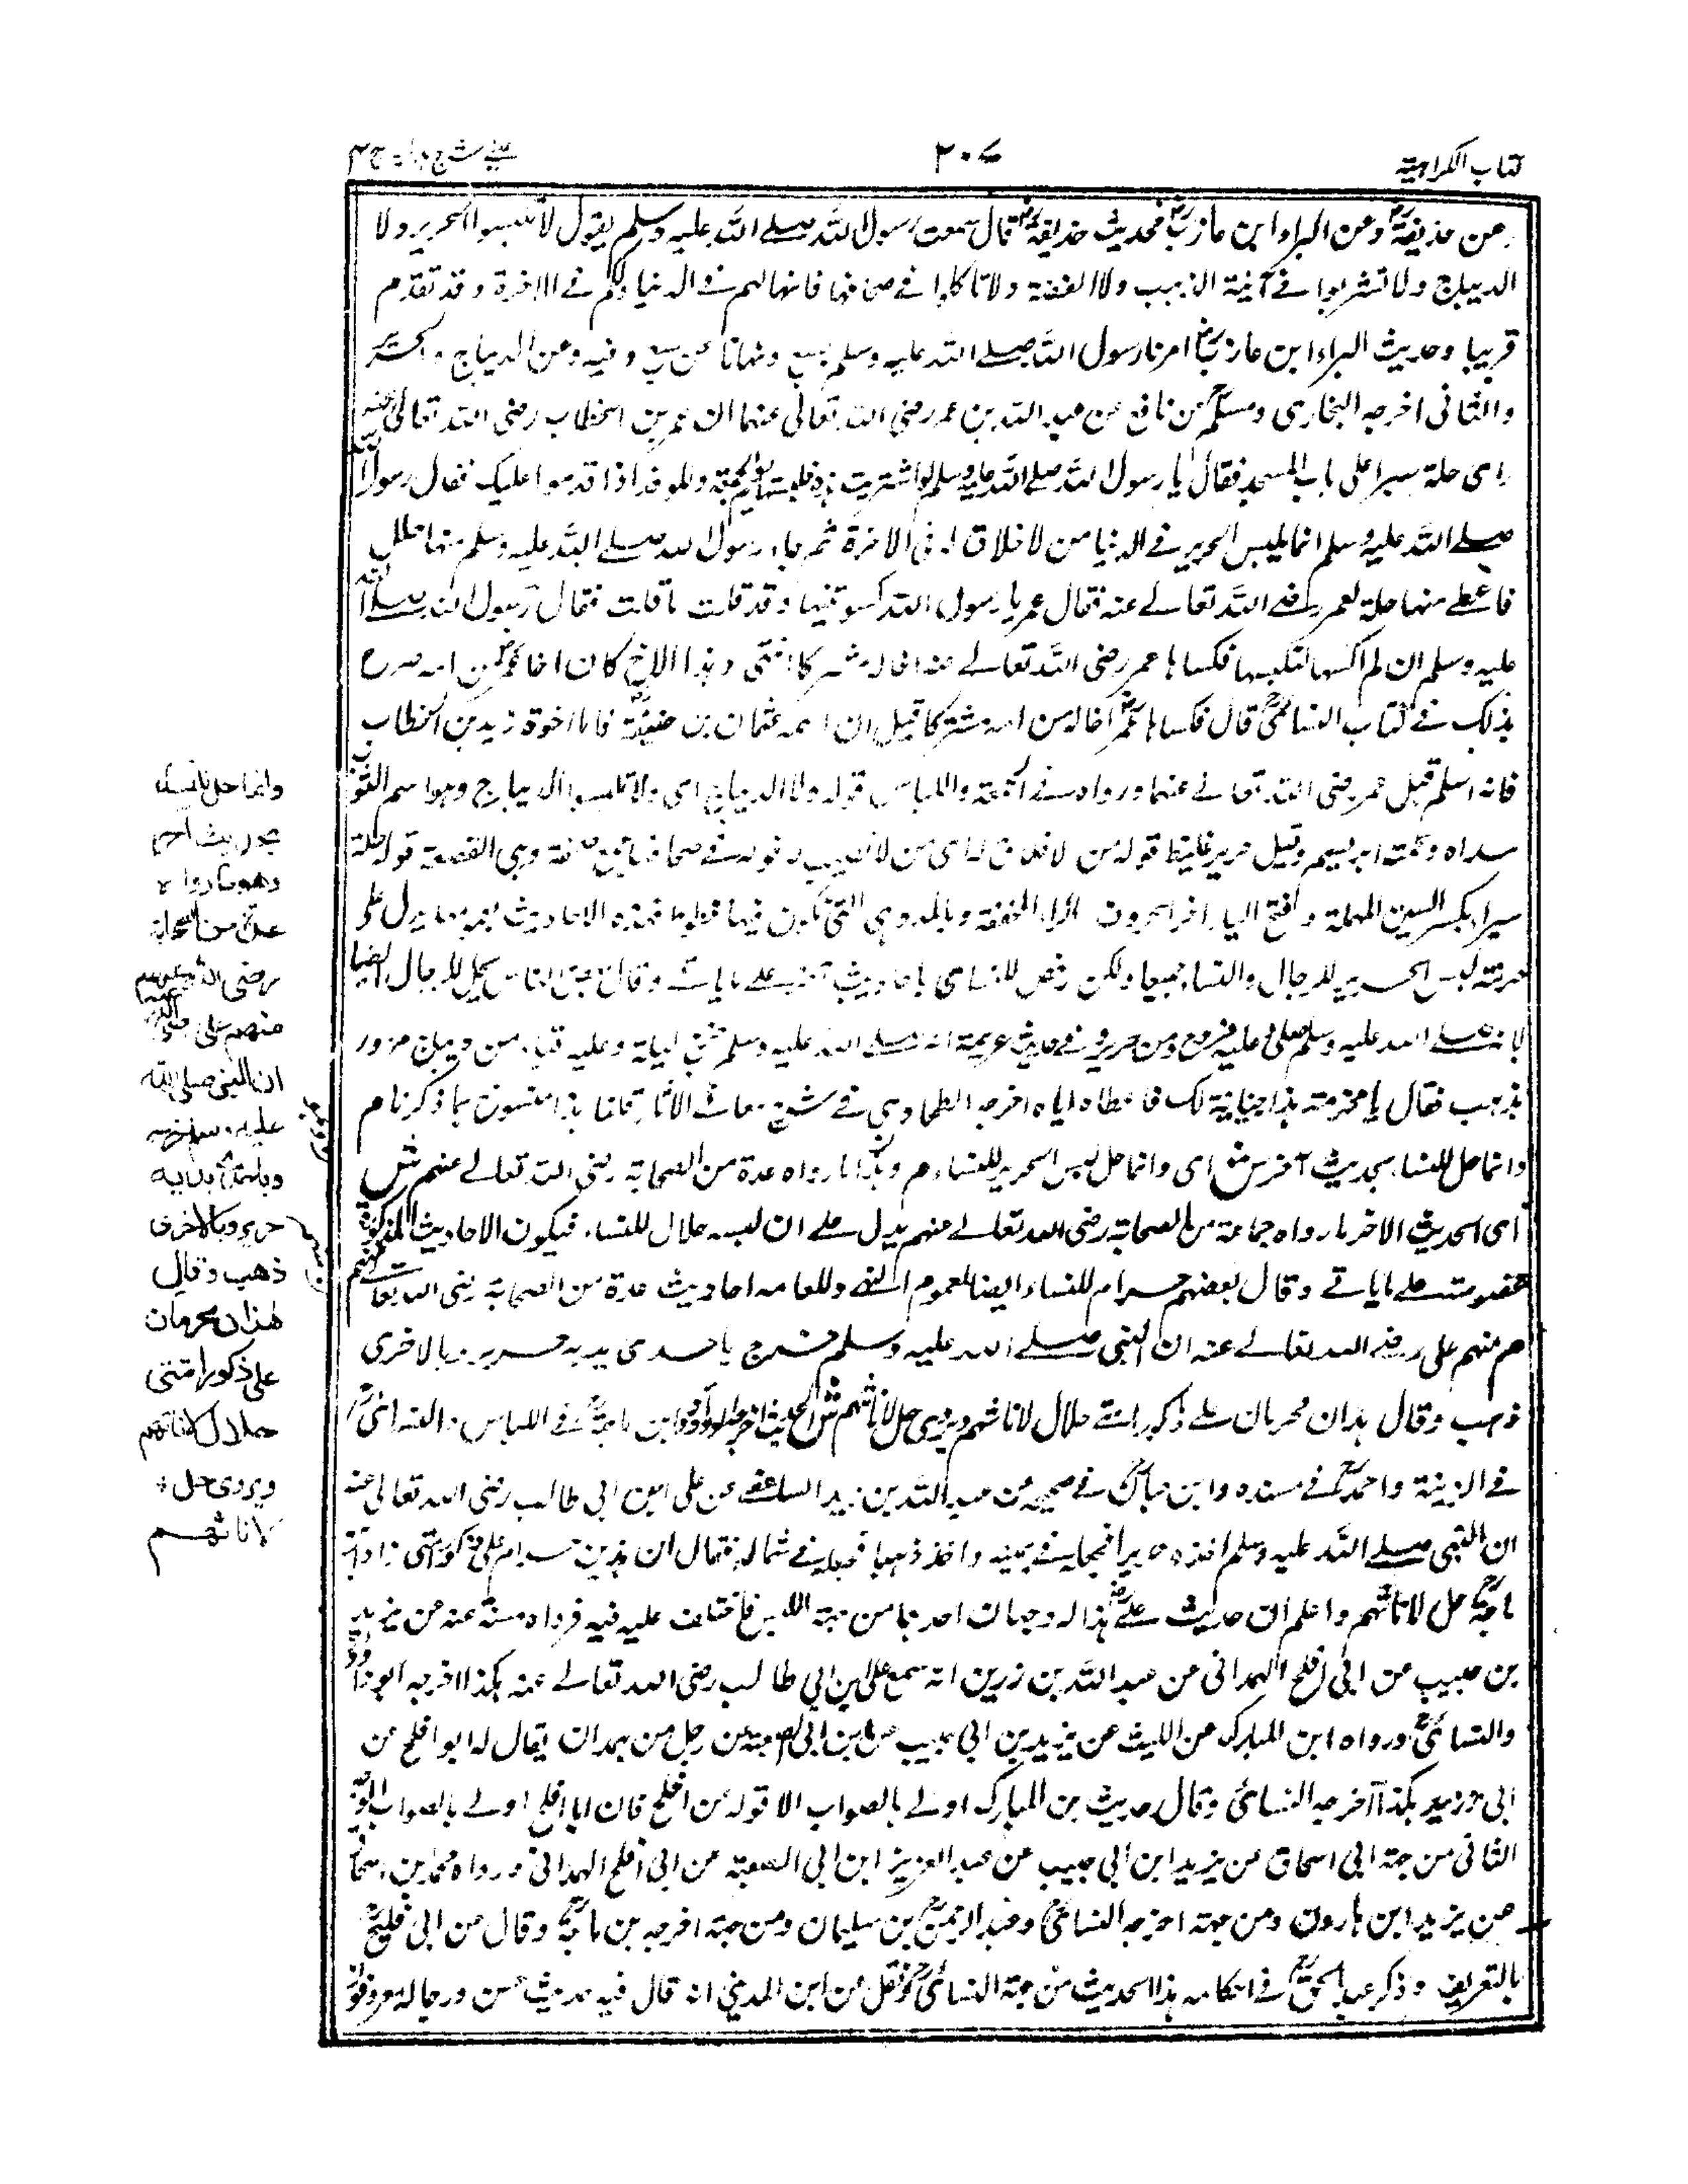 كتاب الكراهية
٢٠٧
عن حذيفة رض وعن البراء ابن عازب رض فحديث حذيفة رض قال سمعت رسول الله صلے الله عليه وسلم يقول لا تلبسوا الحرير ولا
الديباج ولا تشربوا فے آنية الذهب ولا الفضة ولا تاكلوا فے صحافها فانها لهم فے الدنيا ولكم فے الاخرة وقد تقدم
قريبا وحديث البراء ابن عازب رض امرنا رسول الله صلے الله عليه وسلم بسبع ونهانا عن سبع وفيه وعن الديباج والحرير
والثانى اخرجه البخارى ومسلم عن نافع عن عبد الله بن عمر رضى الله تعالى عنهما ان عمر بن الخطاب رضى الله تعالى عنه
راى حلة سيرا على باب المسجد فقال يا رسول الله صلے الله عليه وسلم لو اشتريت هذه فلبستها يوم الجمعة وللوفد اذا قدموا عليك فقال رسول الله
صلے الله عليه وسلم انما يلبس الحرير فے الدنيا من لا خلاق له فى الاخرة ثم جاء رسول الله صلے الله عليه وسلم منها حلل
فاعطے منها حلة لعمر رضے الله تعالے عنه فقال عمر يا رسول الله كسوتنيها وقد قلت ما قلت فقال رسول الله صلے الله
عليه وسلم ان لم اكسها لتلبسها فكساها عمر رضى الله تعالے عنه اخا له مشركا انتهى وهذا الاخ كان اخا عمر رض من امه صرح
بذلك فے كتاب النسائى رح قال فكساها عمر رض اخا له من امه مشركا قيل ان اسمه عثمان بن فاما اخوه زيد بن الخطاب
فانه اسلم قبل عمر رضى الله تعالے عنهما ورواه فے الجمعة واللباس قوله ولا الديباج اى ولا تلبسوا الديباج وهو اسم الثوب
سداه ولحمته ابريسم وقيل حرير غليظ قوله من لا خلاق له اى من لا نصيب له قوله فے صحافها جمع صحفة وهى القصعة قوله حلة
سيراء بكسر السين المهملة وفتح الياء اخر الحروف الراء المخففة وبالمد وهى التى تكون فيها خطوط فهذه الاحاديث مما يدل على
حرمة لبس الحرير للرجال والنساء جميعا ولكن رخص للنساء باحاديث على ما ياتے وقال بعض الناس يحل للرجال ايضا
لانه صلے الله عليه وسلم صلى عليه فروج من حرير وفے حديث انه صلے الله عليه وسلم وعليه قباء من ديباج مزرور
بذهب فقال يا مخرمة هذا خبأناه لك فاعطاه اياه اخرجه الطحاوى فے شرح معانى الاثار قلنا هذا منسوخ بما ذكرنا م
وانما حل للنساء بحديث آخر ش اى وانما حل لبس الحرير للنساء م وهذا ما رواه عدة من الصحابة رضى الله تعالے عنهم ش
اى الحديث الاخر ما رواه جماعة من الصحابة رضى الله تعالے عنهم يدل على ان لبسه حلال للنساء فيكون الاحاديث المذكورة
مخصوصة على ما ياتے وقال بعضهم حرام للنساء ايضا لعموم النهے وللعامة احاديث عدة من الصحابة رضى الله تعالے عنهم
م منهم على رضے الله تعالے عنه ان النبى صلے الله عليه وسلم خرج باحدى يديه حرير وبالاخرى
ذهب وقال هذان محرمان على ذكور امتے حلال لاناثهم ويروى حل لاناثهم ش الحديث اخرجه ابوداود وابن ماجة فے اللباس والنسائى رح
فے الزينة واحمد رح فے مسنده وابن حبان رح فے صحيحه عن عبد الله بن زرير الغافقے عن على ابن ابى طالب رضى الله تعالى عنه
ان النبى صلے الله عليه وسلم اخذ حريرا فجعله فے يمينه واخذ ذهبا فجعله فے شماله فقال ان هذين حرام على ذكور امتى زاد ابن
ماجة رح حل لاناثهم واعلم ان حديث علے رض هذا له وجهان احدهما من جهة الليث فاختلف عليه فيه فرواه عنه عن يزيد
بن حبيب عن ابى افلح الهمدانى عن عبد الله بن زرين انه سمع على بن ابي طالب رضى الله تعالے عنه هكذا اخرجه ابوداود
والنسائى رح ورواه ابن المبارك عن الليث عن يزيد بن ابى حبيب عن ابن ابى الصعبة عن رجل من همدان يقال له ابو افلح عن
ابى زرير هكذا اخرجه النسائى وقال حديث بن المبارك اولے بالصواب الا قوله عن افلح فان ابا افلح اولے بالصواب الوجه
الثانى من جهة ابى اسحاق عن يزيد ابن ابى حبيب عن عبد العزيز ابن ابى الصعبة عن ابى افلح الهمدانى ورواه محمد بن اسحاق
عن يزيد ابن هارون ومن جهته اخرجه النسائى رح وعبد الرحمن بن سليمان ومن جهته اخرجه بن ماجة رح وقال عن ابى
بالتعريف وذكر عبد الحق رح فے احكامه هذا الحديث من جهة النسائى رح ونقل عن ابن المدينى انه قال فيه حديث حسن ورجاله معروفون
وانما حل للنساء
بحديث آخر
وهو ما رواه
عدة من الصحابة
رضى الله عنهم
منهم على رضى الله
ان النبى صلى الله
عليه وسلم خرج
وباحدى يديه
حرير وبالاخرى
ذهب وقال
هذان محرمان
على ذكور امتى
حلال لاناثهم
ويروى حل
لاناثهم